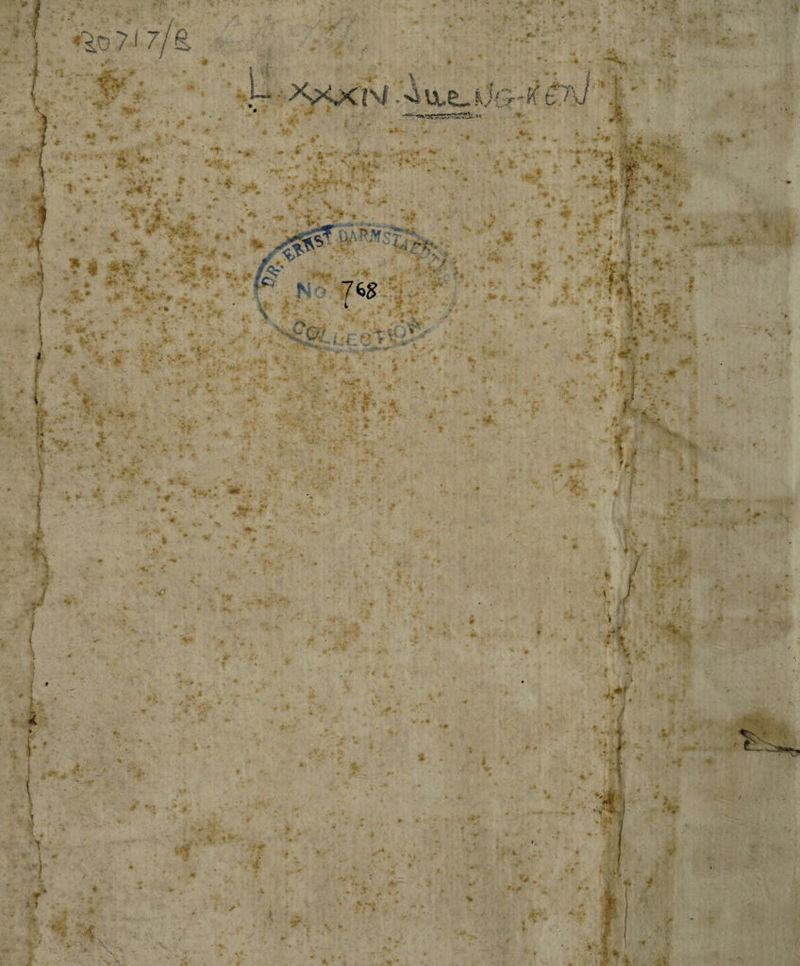 20717/B
L XXXIV
DR. ERNST DARMSTAEDTER
No 768
COLLECTION